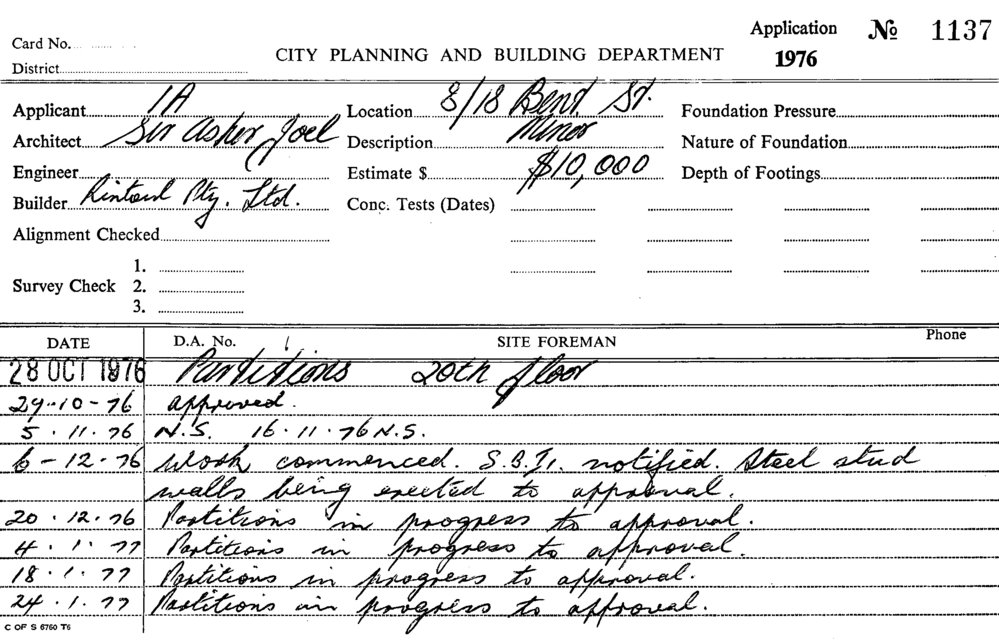 Application № 1137
Card No.
CITY PLANNING AND BUILDING DEPARTMENT 1976
District
Applicant 1A Location 8/18 Bent St. Foundation Pressure
Architect Sir Asher Joel Description Minor Nature of Foundation
Engineer Estimate $ $10,000 Depth of Footings
Builder Pty. Ltd. Conc. Tests (Dates)
Alignment Checked
1.
Survey Check 2.
3.
DATE D.A. No. SITE FOREMAN Phone
28 OCT 1976 Partitions 20th floor
29-10-76 approved.
5.11.76 N.S. 16.11.76 N.S.
6-12-76 Work commenced. notified. Steel stud
walls being erected to approval.
20.12.76 Partitions in progress to approval.
4.1.77 Partitions in progress to approval.
18.1.77 Partitions in progress to approval.
24.1.77 Partitions in progress to approval.
C OF S 6760 T6